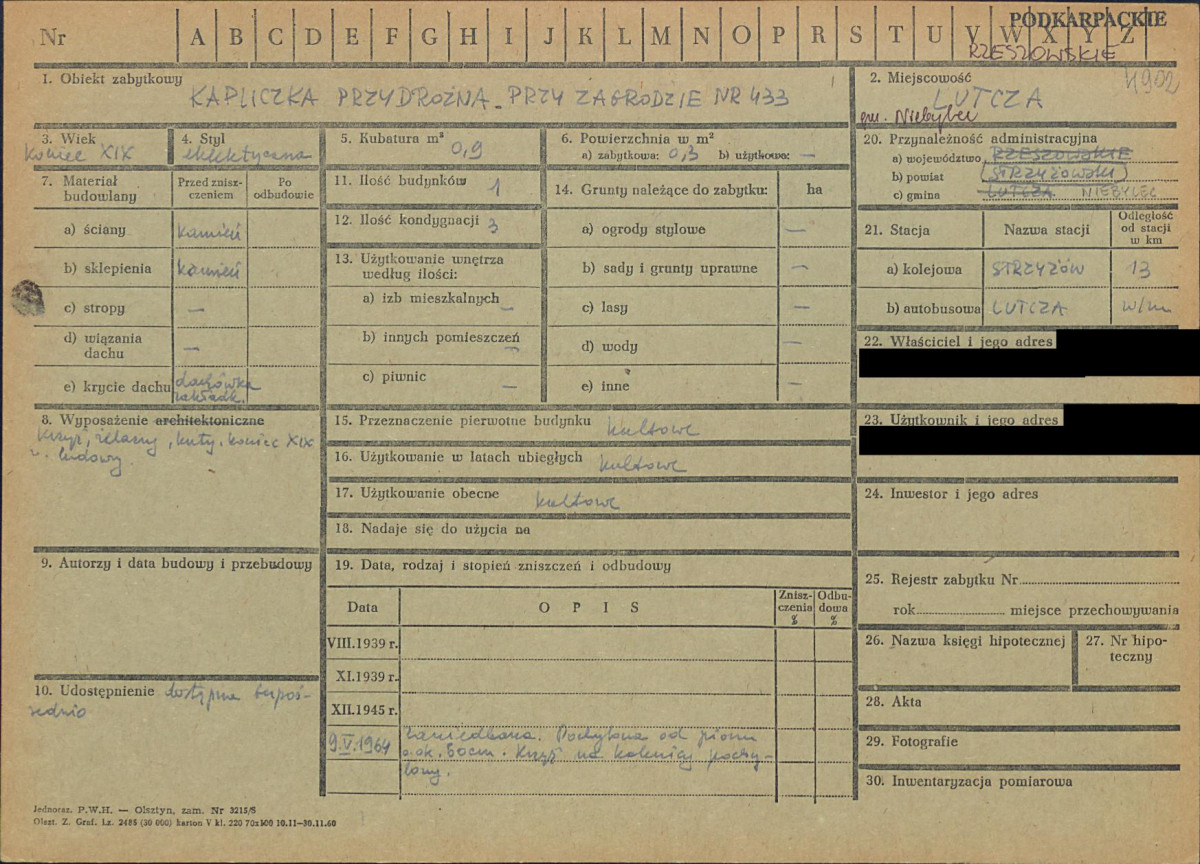 Nr A B C D E F G H I J K L M N O P R S T U V W X Y Z
PODKARPACKIE
RZESZOWSKIE
1. Obiekt zabytkowy
KAPLICZKA PRZYDROŻNA - PRZY ZAGRODZIE NR 433
2. Miejscowość
4902
LUTCZA
gm. Niebylec
3. Wiek
koniec XIX
4. Styl
eklektyczna
5. Kubatura m³ 0,9
6. Powierzchnia w m²
a) zabytkowa: 0,3 b) użytkowa: —
7. Materiał budowlany
Przed znisz-
czeniem
Po
odbudowie
a) ściany kamień
b) sklepienia kamień
c) stropy —
d) wiązania
dachu —
e) krycie dachu dachówka
zakładk.
11. Ilość budynków 1
12. Ilość kondygnacji 3
13. Użytkowanie wnętrza
według ilości:
a) izb mieszkalnych —
b) innych pomieszczeń —
c) piwnic —
14. Grunty należące do zabytku: ha
a) ogrody stylowe —
b) sady i grunty uprawne —
c) lasy —
d) wody —
e) inne —
20. Przynależność administracyjna
a) województwo RZESZOWSKIE
b) powiat (STRZYŻOWSKI)
c) gmina LUTCZA NIEBYLEC
21. Stacja Nazwa stacji
Odległość
od stacji
w km
a) kolejowa STRZYŻÓW 13
b) autobusowa LUTCZA w/m
22. Właściciel i jego adres
23. Użytkownik i jego adres
8. Wyposażenie architektoniczne
Krzyż, żelazny, kuty, koniec XIX
w. ludowy.
9. Autorzy i data budowy i przebudowy
10. Udostępnienie dostępna bezpoś-
rednio
15. Przeznaczenie pierwotne budynku kultowe
16. Użytkowanie w latach ubiegłych kultowe
17. Użytkowanie obecne kultowe
18. Nadaje się do użycia na
19. Data, rodzaj i stopień zniszczeń i odbudowy
Data OPIS
Znisz-
czenia
%
Odbu-
dowa
%
VIII.1939 r.
XI.1939 r.
XII.1945 r.
9.V.1964 Zaniedbana. Pochylona od pionu
o ok. 50cm. Krzyż na kalenicy pochy-
lony.
24. Inwestor i jego adres
25. Rejestr zabytku Nr
rok miejsce przechowywania
26. Nazwa księgi hipotecznej
27. Nr hipo-
teczny
28. Akta
29. Fotografie
30. Inwentaryzacja pomiarowa
Jednoraz. P.W.H. — Olsztyn, zam. Nr 3215/S
Olszt. Z. Graf. Lz. 2485 (30 000) karton V kl. 220 70x100 10.11-30.11.60